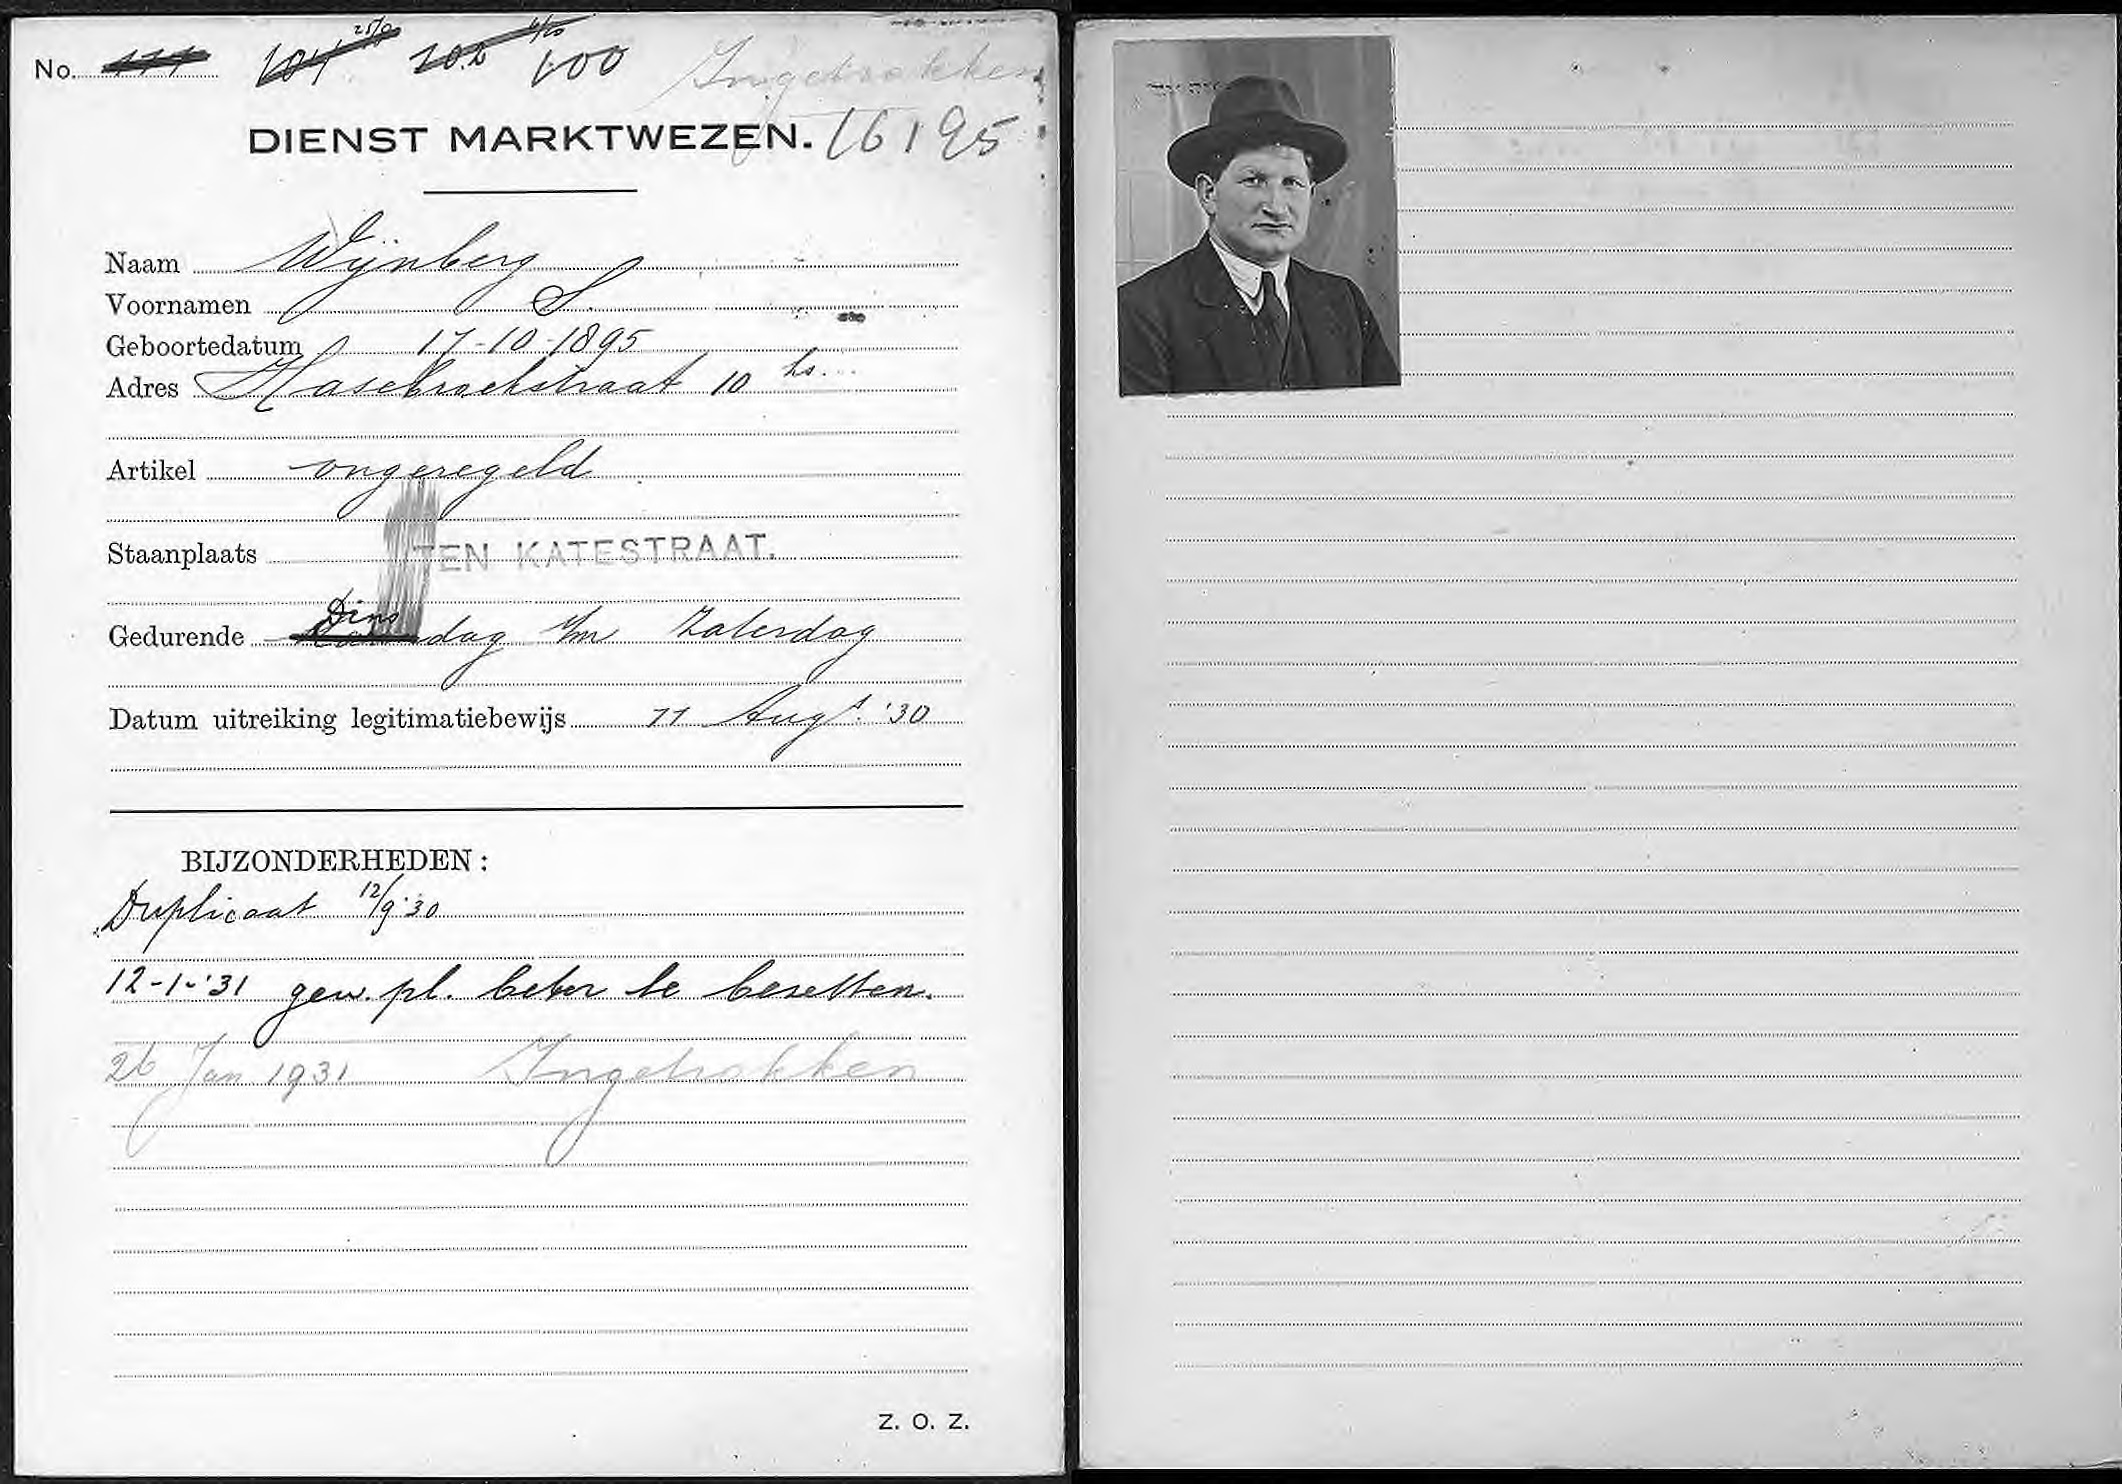 No. 111 101 25/9 102 6/10 100 Ingetrokken
DIENST MARKTWEZEN. 16195
Naam Wijnberg
Voornamen S.
Geboortedatum 17-10-1895
Adres Hasebroekstraat 10 hs.
Artikel ongeregeld
Staanplaats TEN KATESTRAAT.
Dins
Gedurende dag t/m Zaterdag
Datum uitreiking legitimatiebewijs 11 Aug. '30
BIJZONDERHEDEN:
Duplicaat 12/9 '30
12-1-'31 gew. pl. beter te bezetten.
26 Jan 1931 Ingetrokken
Z. O. Z.